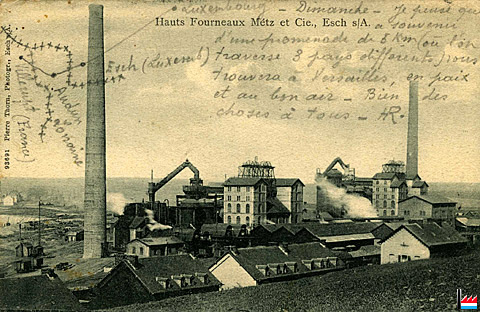 Hauts Fourneaux Metz et Cie., Esch s/A.
Luxembourg - Dimanche - Je pense que
a souvenir
d'une promenade de 8 Km (ou l'on
traverse 3 pays différents) vous
trouvera à Versailles, en paix
et au bon air - Bien des
choses à tous -
Esch (Luxem)
Villerupt
(France)
Audun
93691 Pierre Thorn, Photogr., Esch